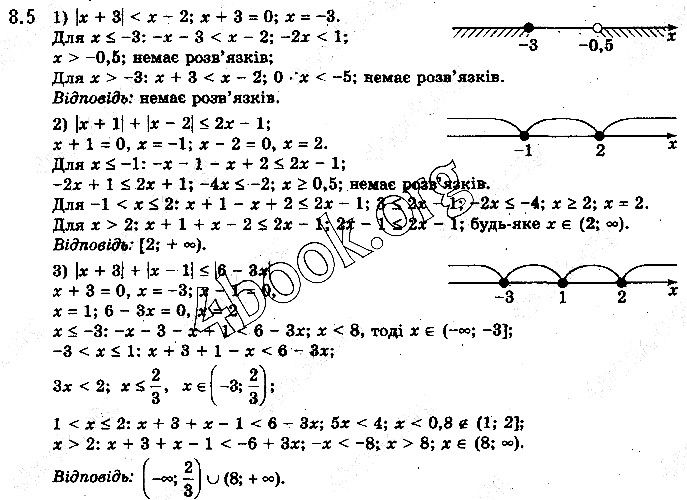 8.5 1) |x + 3| < x − 2; x + 3 = 0; x = −3.
Для x ≤ −3: −x − 3 < x − 2; −2x < 1;
x > −0,5; немає розв’язків;
Для x > −3: x + 3 < x − 2; 0 · x < −5; немає розв’язків.
Відповідь: немає розв’язків.
−3 −0,5 x
2) |x + 1| + |x − 2| ≤ 2x − 1;
x + 1 = 0, x = −1; x − 2 = 0, x = 2.
Для x ≤ −1: −x − 1 − x + 2 ≤ 2x − 1;
−2x + 1 ≤ 2x + 1; −4x ≤ −2; x ≥ 0,5; немає розв’язків.
Для −1 < x ≤ 2: x + 1 − x + 2 ≤ 2x − 1; 3 ≤ 2x − 1; −2x ≤ −4; x ≥ 2; x = 2.
Для x > 2: x + 1 + x − 2 ≤ 2x − 1; 2x − 1 ≤ 2x − 1; будь-яке x ∈ (2; ∞).
Відповідь: [2; + ∞).
−1 2 x
3) |x + 3| + |x − 1| ≤ |6 − 3x|
x + 3 = 0, x = −3; x − 1 = 0,
x = 1; 6 − 3x = 0, x = 2
x ≤ −3: −x − 3 − x + 1 < 6 − 3x; x < 8, тоді x ∈ (−∞; −3];
−3 < x ≤ 1: x + 3 + 1 − x < 6 − 3x;
3x < 2; x ≤ 2/3, x ∈ (−3; 2/3);
1 < x ≤ 2: x + 3 + x − 1 < 6 − 3x; 5x < 4; x < 0,8 ∉ (1; 2];
x > 2: x + 3 + x − 1 < −6 + 3x; −x < −8; x > 8; x ∈ (8; ∞).
Відповідь: (−∞; 2/3) ∪ (8; + ∞).
−3 1 2 x
4book.org